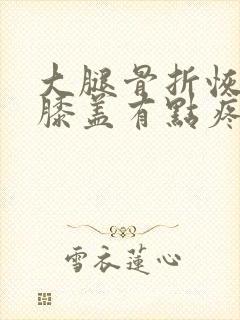 大腿骨折恢
膝盖有點疼
雪衣蓮心